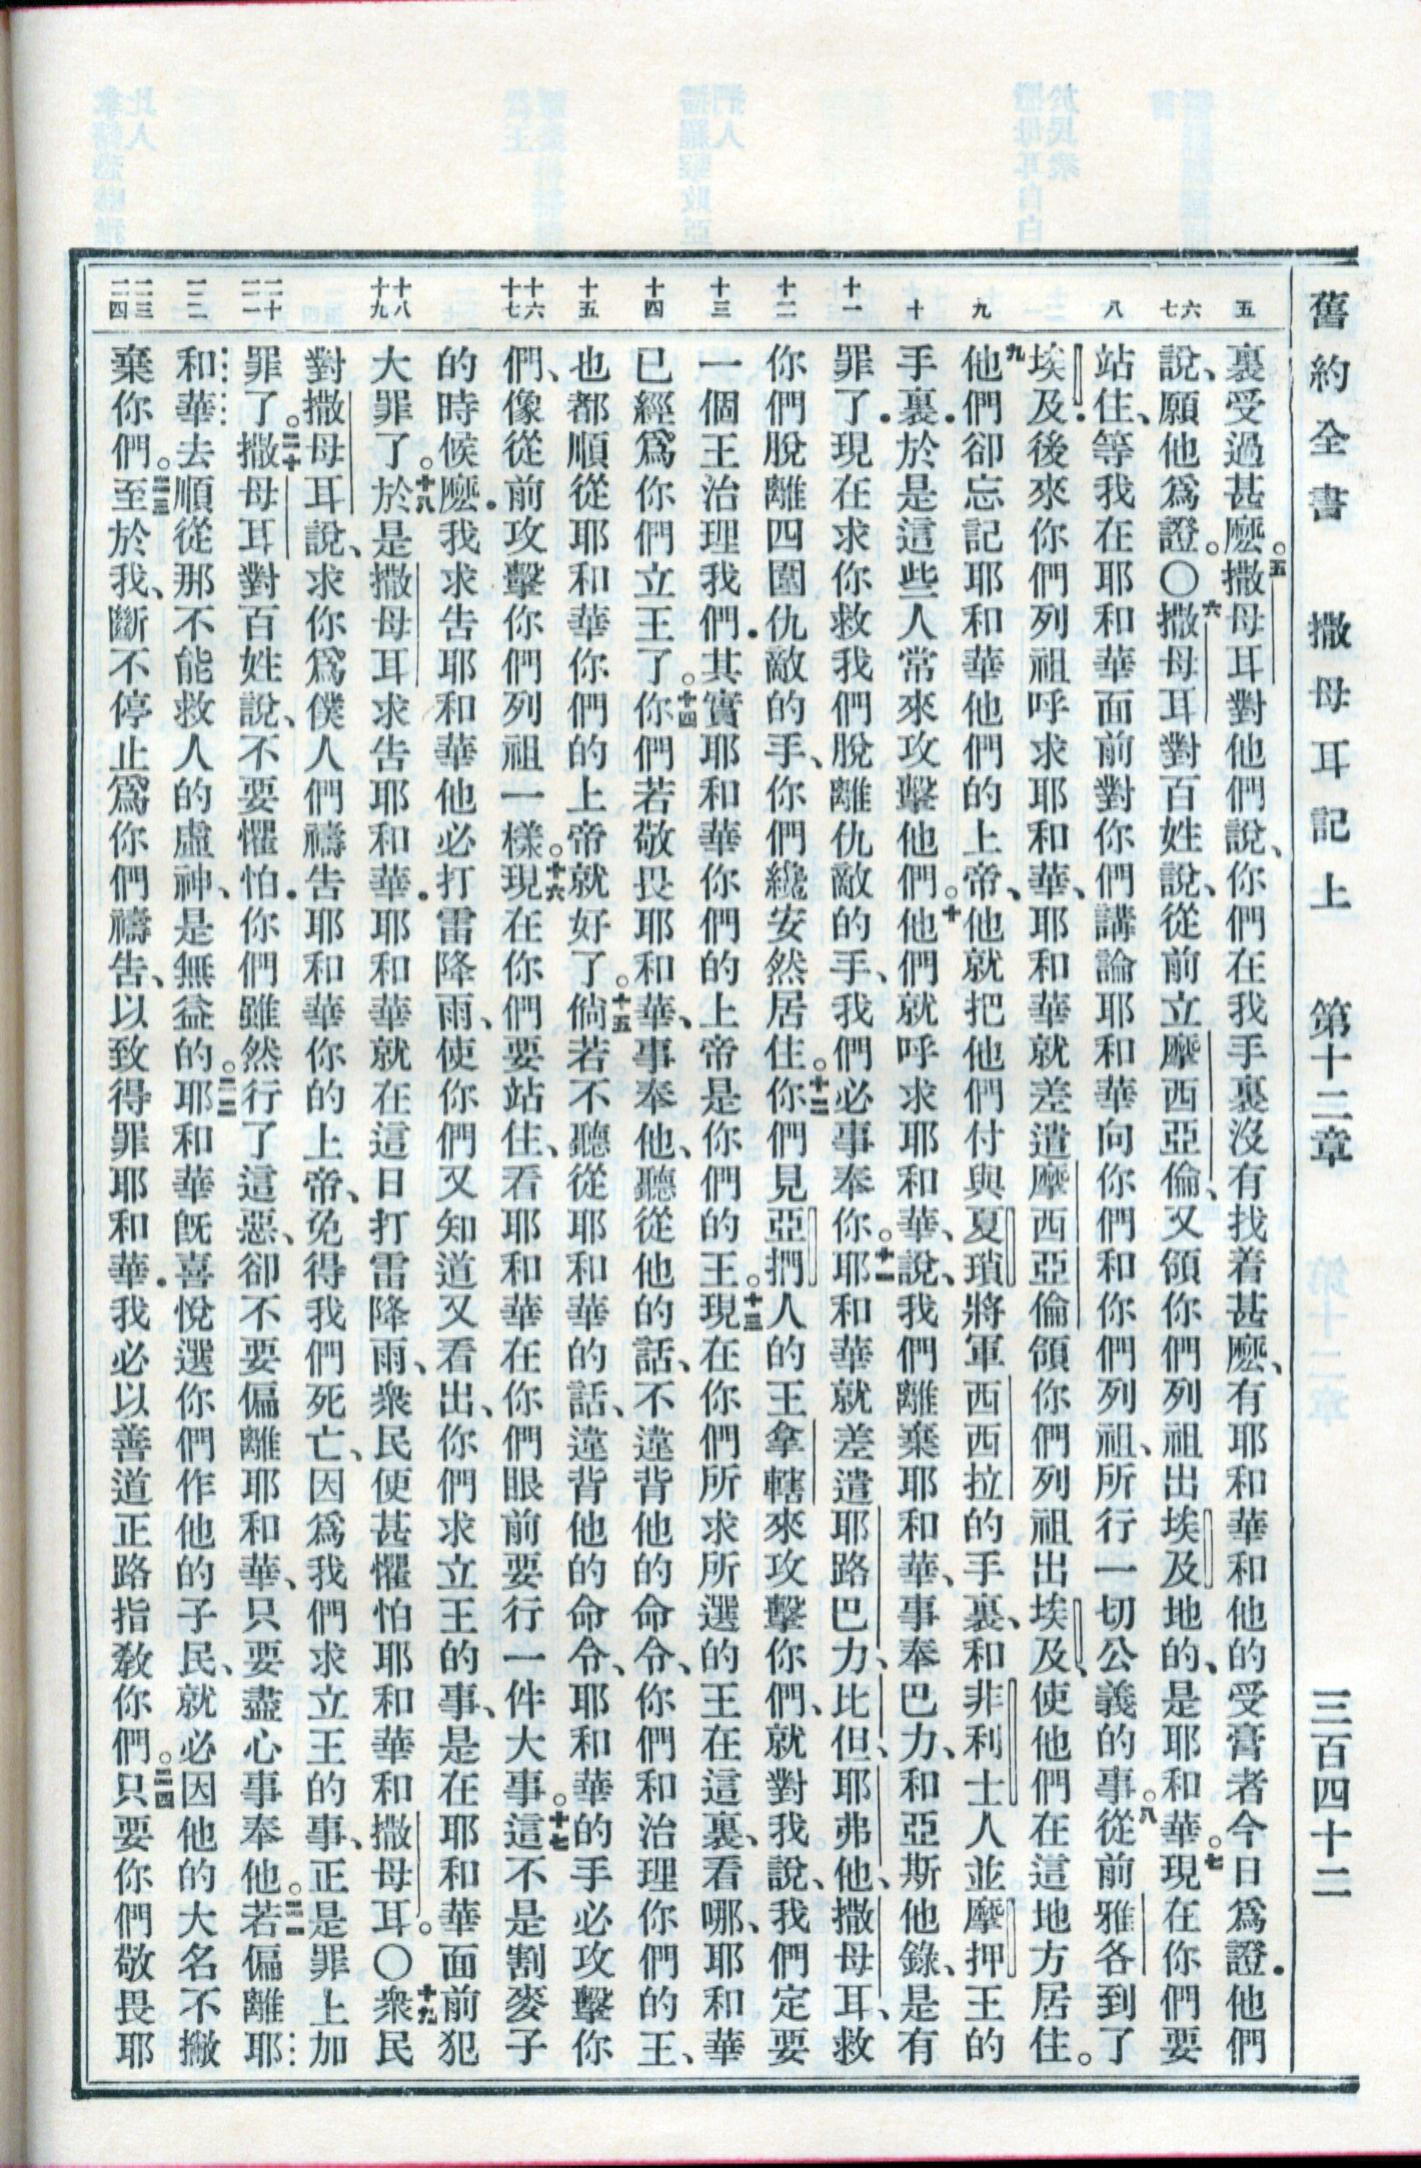 舊約全書 撒母耳記上 第十二章 三百四十二
五
裏受過甚麼。五撒母耳對他們說、你們在我手裏沒有找着甚麼、有耶和華和他的受膏者今日爲證．他們
六 七
說、願他爲證。〇六撒母耳對百姓說、從前立摩西亞倫、又領你們列祖出埃及地的、是耶和華。七現在你們要
八
站住、等我在耶和華面前對你們講論耶和華向你們和你們列祖、所行一切公義的事。八從前雅各到了
埃及．後來你們列祖呼求耶和華、耶和華就差遣摩西亞倫領你們列祖出埃及、使他們在這地方居住。
九
九他們卻忘記耶和華他們的上帝、他就把他們付與夏瑣將軍西西拉的手裏、和非利士人並摩押王的
十
手裏．於是這些人常來攻擊他們。十他們就呼求耶和華、說、我們離棄耶和華、事奉巴力、和亞斯他錄、是有
十一
罪了．現在求你救我們脫離仇敵的手、我們必事奉你。十一耶和華就差遣耶路巴力、比但、耶弗他、撒母耳、救
十二
你們脫離四圍仇敵的手、你們纔安然居住。十二你們見亞捫人的王拿轄來攻擊你們、就對我說、我們定要
十三
一個王治理我們．其實耶和華你們的上帝是你們的王。十三現在你們所求所選的王在這裏、看哪、耶和華
十四
已經爲你們立王了。十四你們若敬畏耶和華、事奉他、聽從他的話、不違背他的命令、你們和治理你們的王、
十五
也都順從耶和華你們的上帝就好了。十五倘若不聽從耶和華的話、違背他的命令、耶和華的手必攻擊你
十六 十七
們、像從前攻擊你們列祖一樣。十六現在你們要站住、看耶和華在你們眼前要行一件大事。十七這不是割麥子
的時候麼．我求告耶和華他必打雷降雨、使你們又知道又看出、你們求立王的事、是在耶和華面前犯
十八 十九
大罪了。十八於是撒母耳求告耶和華．耶和華就在這日打雷降雨、衆民便甚懼怕耶和華和撒母耳。〇十九衆民
對撒母耳說、求你爲僕人們禱告耶和華你的上帝、免得我們死亡、因爲我們求立王的事、正是罪上加
二十 二一
罪了。二十撒母耳對百姓說、不要懼怕．你們雖然行了這惡、卻不要偏離耶和華、只要盡心事奉他。二一若偏離耶
二二
和華去順從那不能救人的虛神、是無益的。二二耶和華既喜悅選你們作他的子民、就必因他的大名不撇
二三 二四
棄你們。二三至於我、斷不停止爲你們禱告、以致得罪耶和華．我必以善道正路指敎你們。二四只要你們敬畏耶